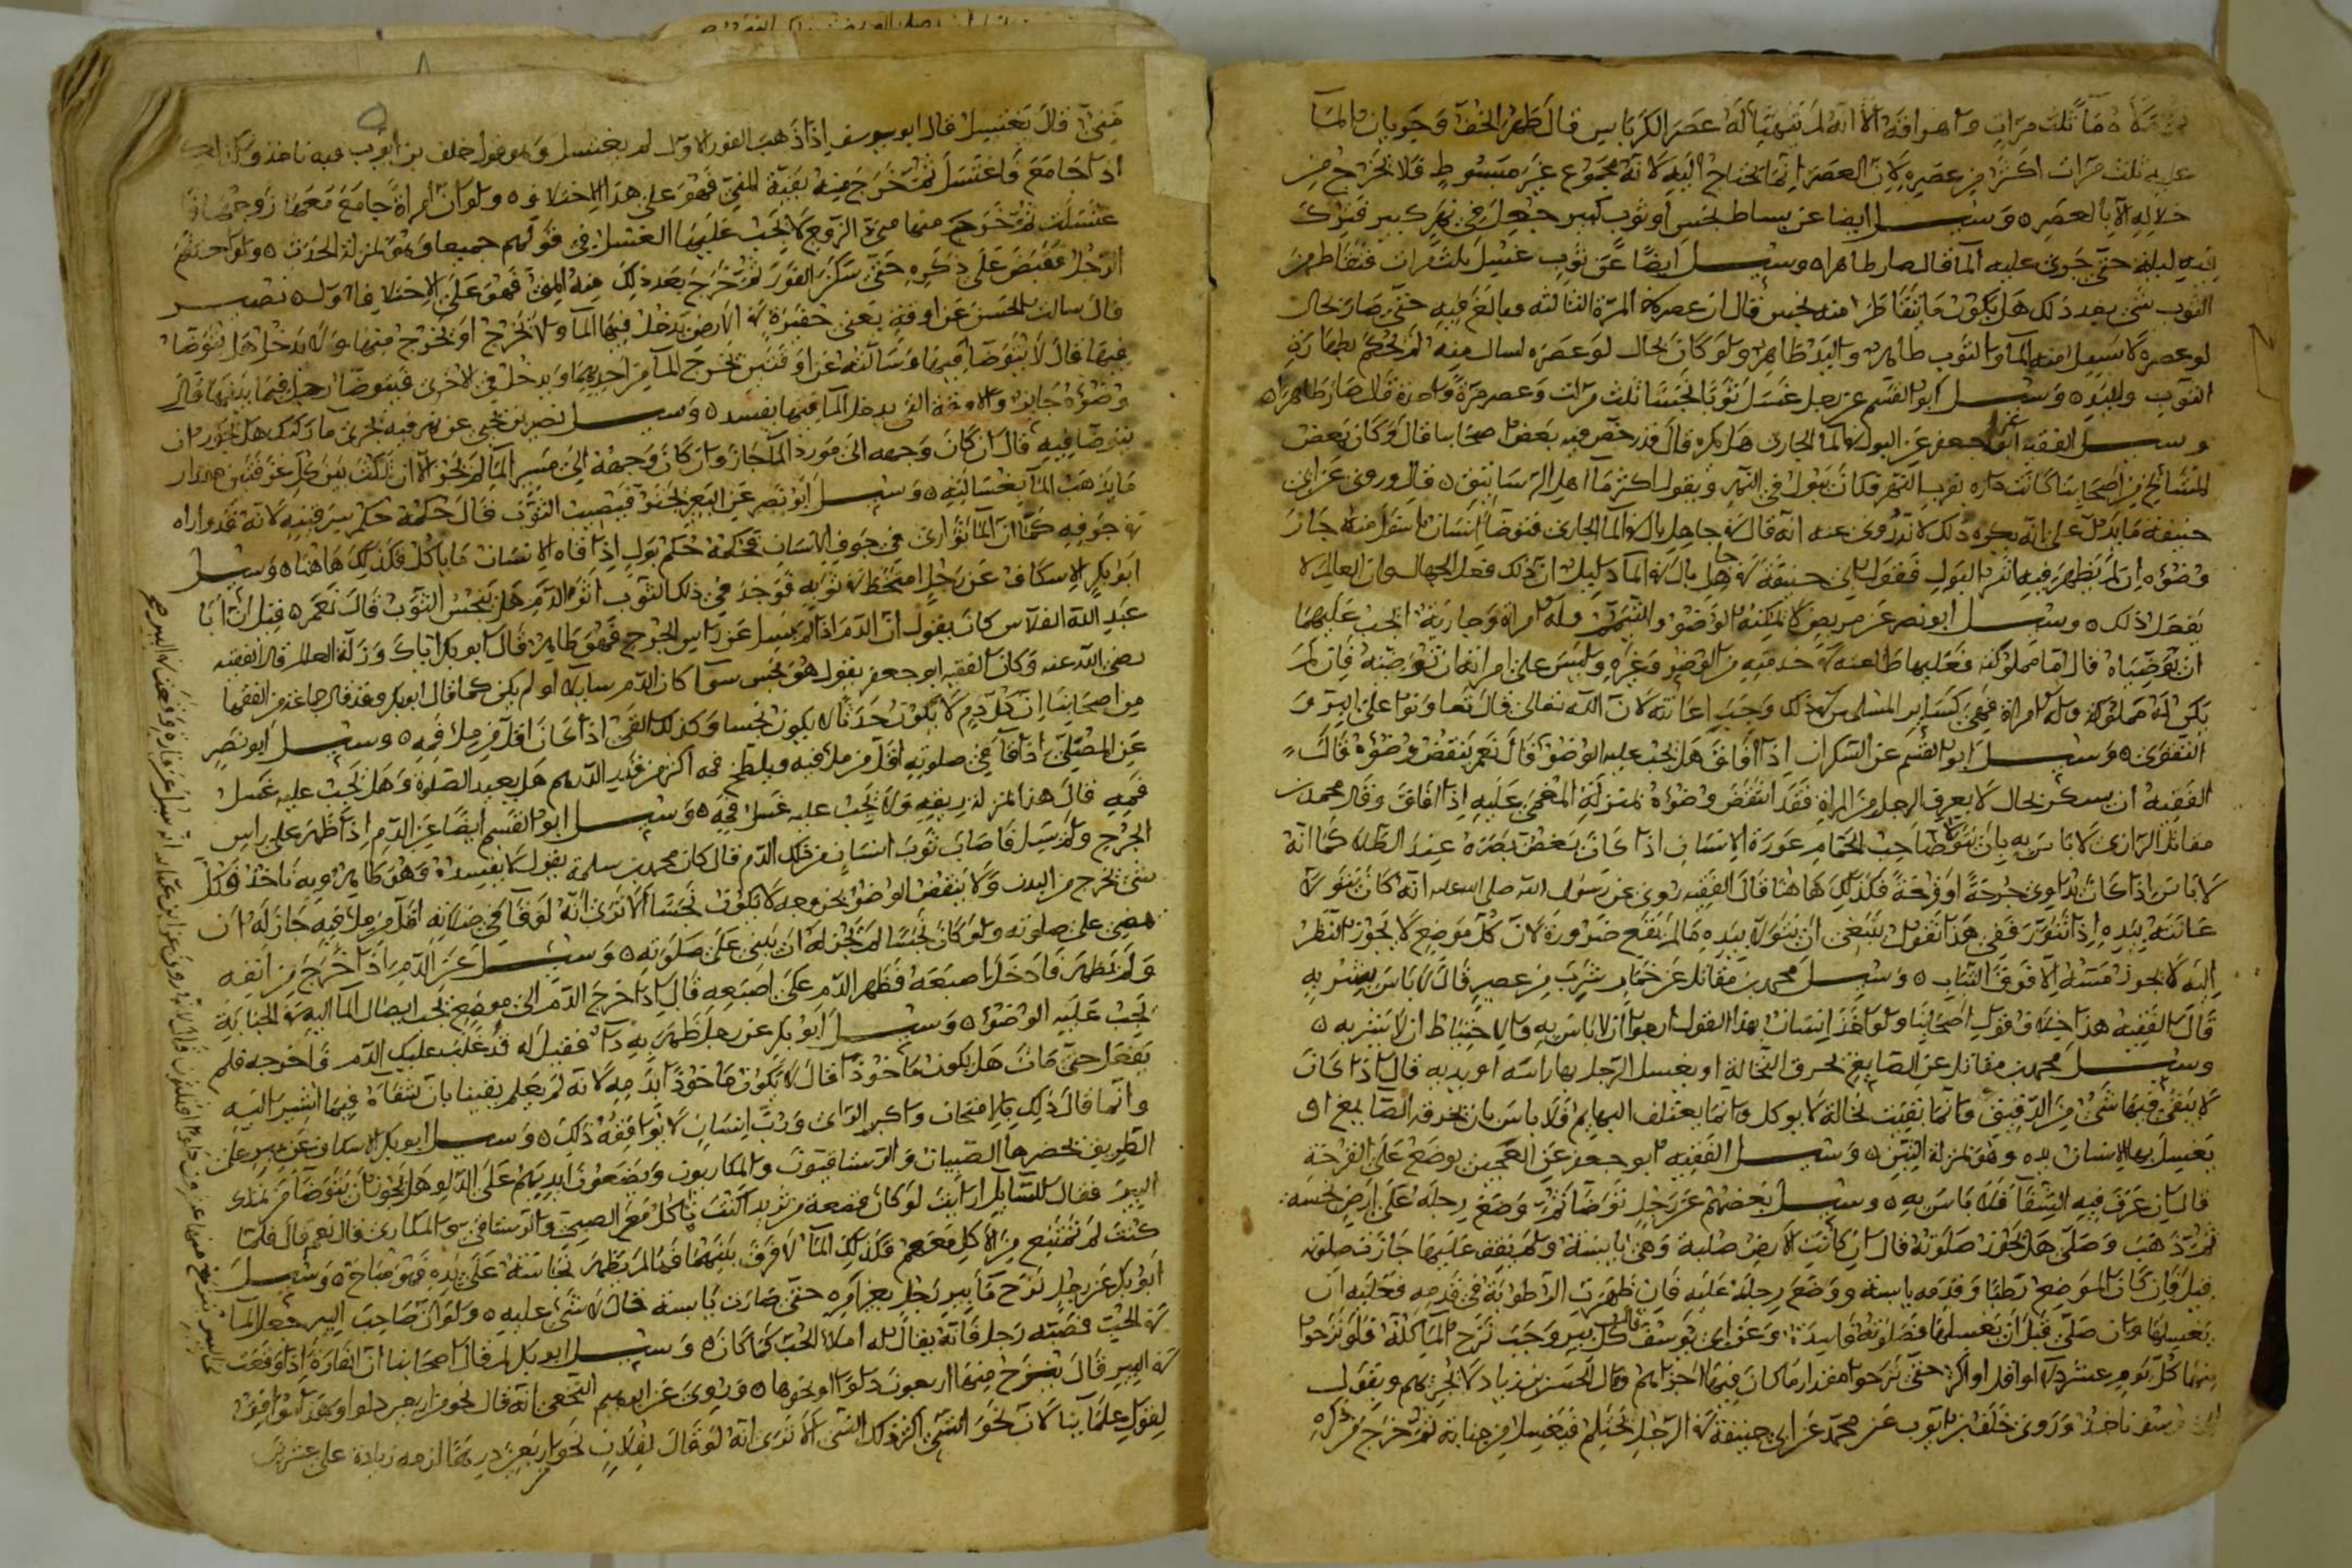 عليه ثلث مرات اكثر من عصره لان العصر انما يحتاج اليه لانه مجموع غير مبسوط فلا يخرج من
خلاله الا بالعصر ه وسئل ايضا عن بساط نجس او ثوب كبير جعل في نهر كبير فترك
فيه ليلة حتى جرى عليه الما قال صار طاهرا ه وسئل ايضا عن ثوب غسل ثلث مرات فتقاطر من
الثوب شي بعد ذلك هل يكون ما يتقاطر منه نجس قال ان عصره في المرة الثالثة وبالغ فيه حتى صار بحال
لو عصره لا يسيل منه الما والثوب طاهر واليد طاهر ولو كان بحال لو عصره لسال منه لم يحكم بطهارة
الثوب واليد ه وسئل ابو القسم عن رجل غسل ثوبا نجسا ثلث مرات وعصر مرة واحدة قال صار طاهرا ه
وسئل الفقيه ابو جعفر عن البول في الما الجاري هل يكره قال قد رخص فيه بعض اصحابنا قال وكان بعض
المشائخ من اصحابنا كانت داره بقرب النهر فكان يبول في النهر ويقول اكثر ما اهل الرساتيق ه قال وروى عن ابي
حنيفة ما يدل على انه يكره ذلك لانه روى عنه انه قال في جاهل بال في الما الجاري فتوضا انسان اسفل منه جاز
وضوءه ان لم يظهر فيه اثر البول فقول ابي حنيفة في جاهل بال في الما دليل ان ذلك فعل الجهال وان العالم لا
يفعل ذلك ه وسئل ابو نصر عن مريض لا يمكنه الوضوء والتيمم وله امراة وجارية انجب عليهما
ان توضياه قال اما مملوكته فعليها طاعته في خدمته من الوضوء وغيره وليس على امراته ان توضيه فان لم
يكن له مملوكة وله امراة فهي كسائر المسلمين في ذلك وجب اعانته لان الله تعالى قال تعاونوا على البر و
التقوى ه وسئل ابو القسم عن السكران اذا افاق هل يجب عليه الوضوء قال نعم ينقض وضوءه قال
الفقيه ان سكر بحال لا يعرف الرجل من المراة فقد انتقض وضوءه بمنزلة المغمى عليه اذا افاق وقال محمد بن
مقاتل الرازي لا باس به بان يتولى صاحب الحمام عورة الانسان اذا كان يغض بصره عند الطلا كما انه
لا باس اذا كان يداوي جرحة او قرحة فكذلك هاهنا قال الفقيه روى عن رسول الله صلى الله عليه انه كان يتولى
عانته بيده اذا تنور ففي هذا نقول ينبغي ان يتولى بيده ما لم يقع ضرورة لان كل موضع لا يجوز النظر
اليه لا يجوز مسه الا فوق الثياب ه وسئل محمد بن مقاتل عن خمار شرب من عصير قال لا باس بشربه
قال الفقيه هذا خلاف قول اصحابنا ولو اخذ انسان بهذا القول ارجو ان لا باس به والاحتياط ان لا يشربه ه
وسئل محمد بن مقاتل عن الصابغ يحرق النخالة او يغسل الرجل بها راسه او يديه قال اذا كان
لا يبقى فيها شي من الدقيق وانما بقيت نخالة لا يوكل وانما يعتلف البهايم فلا باس بان يحرقه الصابغ او
يغسل بها الانسان يده وهو بمنزلة التبن ه وسئل الفقيه ابو جعفر عن العجين يوضع على القرحة
قال ان عرف فيه الشفا فلا باس به ه وسئل بعضهم عن رجل توضا ثم وضع رجله على ارض نجسة
ثم ذهب وصلى هل تجوز صلوته قال ان كانت الارض صلبة وهي يابسة ولم يقف عليها جازت صلوته
قيل فان كان الموضع رطبا وقدمه يابسة ووضع رجله عليه فان ظهرت الرطوبة في قدمه فعليه ان
يغسلها وان صلى قبل ان يغسلها فصلوته فاسدة وعن ابي يوسف قال كل بير وجب نزح الما كله فلو نزحوا
منها كل يوم عشرين دلوا او اقل او اكثر حتى نزحوا مقدار ما كان فيها اجزاهم وقال الحسن بن زياد لا يجزيهم وبقول
ابي يوسف ناخذ وروى خلف بن ايوب عن محمد عن ابي حنيفة في الرجل يحتلم فيغتسل من جنابة ثم خرج من ذكره
مني قال يغتسل قال ابو يوسف اذا ذهب الفور الاول لم يغتسل وهو قول خلف بن ايوب فبه ناخذ وكذلك
اذا جامع فاغتسل ثم خرج منه بقية المني فهو على هذا الاختلاف ه ولو ان امراة جامع معها زوجها
اغتسلت ثم خرج منها مني الزوج لا يجب عليها الغسل في قولهم جميعا وهو بمنزلة الحدث ه ولو احتلم
الرجل فقبض على ذكره حتى سكن الفور ثم خرج بعد ذلك منه المني فهو على الاختلاف الاول ه نصير
قال سالت الحسن عن اوقة يعني حفيرة في الارض يدخل فيها الما ولا يخرج او يخرج منها ولا يدخل هل يتوضا
فيها قال لا يتوضا فيها وسالته عن اوقتين يخرج الما من احديهما ويدخل في الاخرى فيتوضا رجل فيما بينهما قال
وضوءه جايز والاوقة التي يدخل الما فيها يفسد ه وسئل نصير بن يحيى عن نهر فيه بخرى ما راكد هل يجوز ان
يتوضا فيه قال ان كان وجهه الى مورد الما جاز وان كان وجهه الى مسير الما لم يجز الا ان يمكث بين كل غرفتين مقدار
ما يذهب الما بغساليه ه وسئل ابو نصر عن البعير يجتر فيصيب الثوب قال حكمه حكم سرقينه لانه قد واراه
في جوفه كما ان الما توارى في جوف الانسان فحكمه حكم بول اذا قاه الانسان ما ياكل فكذلك هاهنا ه وسئل
ابو بكر الاسكاف عن رجل امتخط في ثوبه فوجد في ذلك الثوب اثر الدم هل ينجس الثوب قال نعم ه قيل ان ابا
عبد الله القلاس كان يقول ان الدم اذا لم يسل عن راس الجرح فهو طاهر قال ابو بكر اياك وزلة العالم قال الفقيه
رضي الله عنه وكان الفقيه ابو جعفر يقول هو نجس سوا كان الدم سايلا او لم يكن كما قال ابو بكر وقد قال جماعة من الفقها
من اصحابنا ان كل دم لا يكون حدثا لا يكون نجسا وكذلك القي اذا كان اقل من ملء فمه ه وسئل ابو نصر
عن المصلي اذا قا في صلوته اقل من ملء فيه ويلطخ فمه اكثر من قدر الدرهم هل يعيد الصلوة وهل يجب عليه غسل
فمه قال هذا بمنزلة ريقه ولا يجب عليه غسل فمه ه وسئل ابو القسم ايضا عن الدم اذا ظهر على راس
الجرح ولم يسل فاصاب ثوب انسان من ذلك الدم قال كان محمد بن سلمة يقول لا يفسده وهو طاهر وبه ناخذ وكل
شي يخرج من البدن ولا ينقض الوضوء بخروجه لا يكون نجسا الا ترى انه لو قا في صلاته اقل من ملء فيه جاز له ان
يمضي على صلوته ولو كان نجسا لم يجز له ان يبني على صلوته ه وسئل عن الدم اذا خرج من انفه
ولم يظهر فادخل اصبعه فظهر الدم على اصبعه قال اذا خرج الدم الى موضع يجب ايصال الما اليه في الجنابة
يجب عليه الوضوء ه وسئل ابو بكر عن رجل ظهر به دا فقيل له قد غلب عليك الدم فاخرجه فلم
يفعل حتى مات هل يكون ماخوذا قال لا يكون ماخوذا بدمه لانه لم يعلم يقينا بان شفاه فيما اشير اليه
وانما قال ذلك بالامتحان واكبر الراي ورب انسان لا يوافقه ذلك ه وسئل ابو بكر الاسكاف عن بير على
الطريق يحضرها الصبيان والرستاقيون والمكاريون ويضعون ايديهم على الدلو هل يجوز ان يتوضا من تلك
البير فقال للسايل ارايت لو كان قصعة من ثريد اكنت تاكل مع الصبي والرستاقي والمكاري قال نعم قال فلما
كنت لم تمتنع من الاكل معهم فكذلك الما لا فرق بينهما فما لم يظهر نجاسة على يده فهو مباح ه وسئل
ابو بكر عن رجل نزح ما بير رجل بغير امره حتى صارت يابسة قال لا شي عليه ه ولو ان صاحب البير جعل الما
في الحب فصبه رجل فانه يقال له املا الحب كما كان ه وسئل ابو بكر لم قال اصحابنا ان الفارة اذا وقعت
في البير قال ينزح منها اربعون دلوا او نحوها ه وروى عن ابرهيم النخعي انه قال نحو من اربعين دلوا وهذا موافق
لقول علمائنا لان نحو الشي اكثر ذلك الشي الا ترى انه لو قال لفلان نحو اربعين درهما لزمه زيادة على عشرين